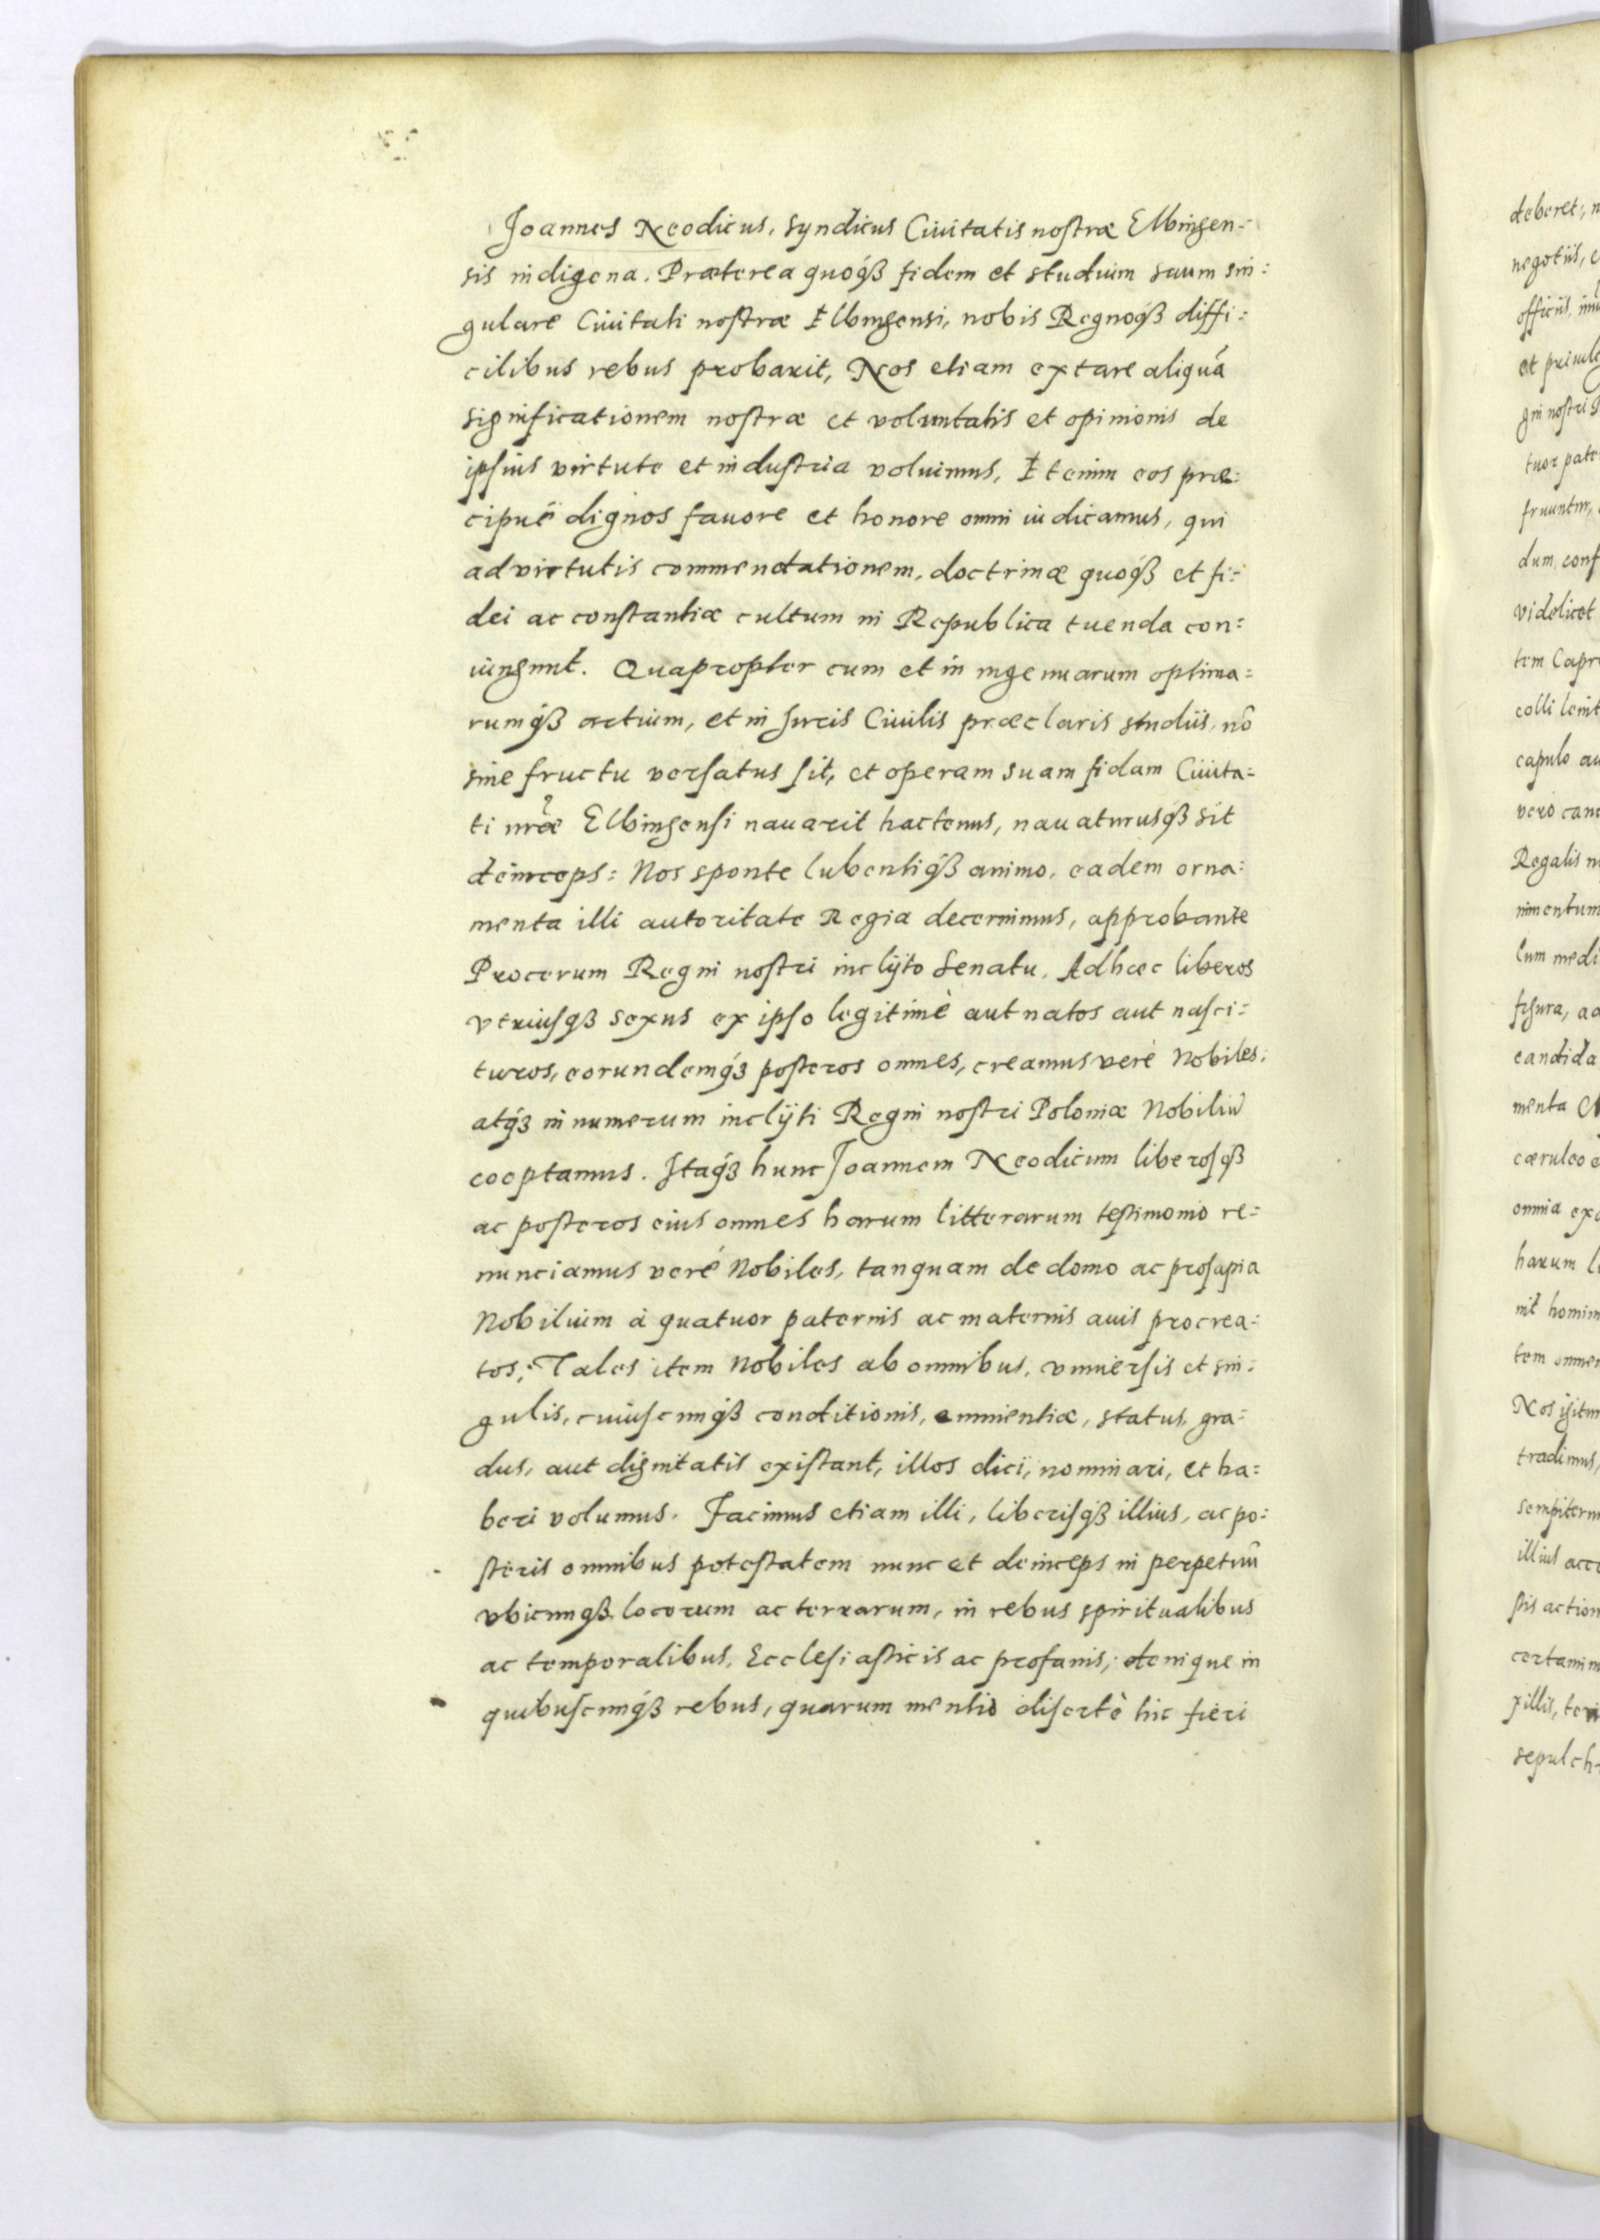 Joannes Neodicus, Syndicus Ciuitatis nostræ Elbingen=
sis indigena. Præterea quoq́ꝫ fidem et studium suum sin=
gulare Ciuitati nostræ Elbingensi, nobis Regnoq́ꝫ diffi=
cilibus rebus probarit, Nos etiam extare aliquã
significationem nostræ et voluntatis et opinionis de
ipsius virtute et industria voluimus, Etenim eos præ=
cipuè dignos fauore et honore omni iudicamus, qui
ad virtutis commendationem, doctrinæ quoq́ꝫ et fi=
dei ac constantiæ cultum in Republica tuenda con=
iungunt. Quapropter cum et in ingenuarum optima=
rumq́ꝫ artium, et in Juris Ciuilis præclaris studiis, nõ
sine fructu versatus sit, et operam suam fidam Ciuita=
ti nr̃æ Elbingensi nauarit hactenus, nauaturusq́ꝫ sit
deinceps: Nos sponte lubentiq́ꝫ animo, eadem orna=
menta illi autoritate Regia decernimus, approbante
Procerum Regni nostri inclÿto Senatu. Adhæc liberos
vtriusqꝫ sexus ex ipso legitimè aut natos aut nasci=
turos, eorundemq́ꝫ posteros omnes, creamus verè Nobiles,
atq́ꝫ in numerum inclÿti Regni nostri Poloniæ Nobiliũ
cooptamus. Itaq́ꝫ hunc Joannem Neodicum liberosqꝫ
ac posteros eius omnes harum litterarum testimonio re=
nunciamus verè Nobiles, tanquam de domo ac prosapia
Nobilium à quatuor paternis ac maternis auis procrea=
tos; Tales item Nobiles ab omnibus, vniuersis et sin=
gulis, cuiuscunq́ꝫ conditionis, eminentiæ, status, gra=
dus, aut dignitatis existant, illos dici, nominari, et ha=
beri volumus. Facimus etiam illi, liberisq́ꝫ illius, ac po=
steris omnibus potestatem nunc et deinceps in perpetuũ
vbicunqꝫ locorum ac terrarum, in rebus spiritualibus
ac temporalibus, Ecclesiasticis ac profanis, denique in
quibuscunq́ꝫ rebus, quarum mentio disertè hic fieri
deberet,
negotiis,
officiis,
et
gni nostri
fruuntur,
dum,
videlicet
tem
colli
capulo
vero
Regalis
figura,
candida
menta
cæruleo
omnia
harum
tem
Nos igitur
tradimus,
illius